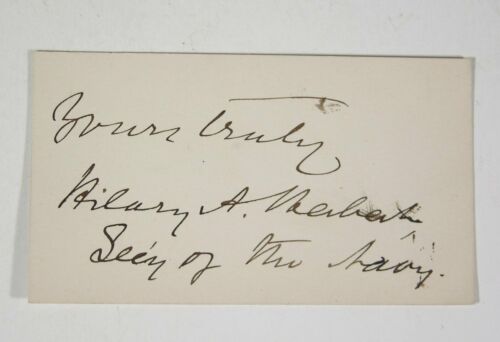 Yours truly
Hilary A. Herbert
Sec'y of the Navy.